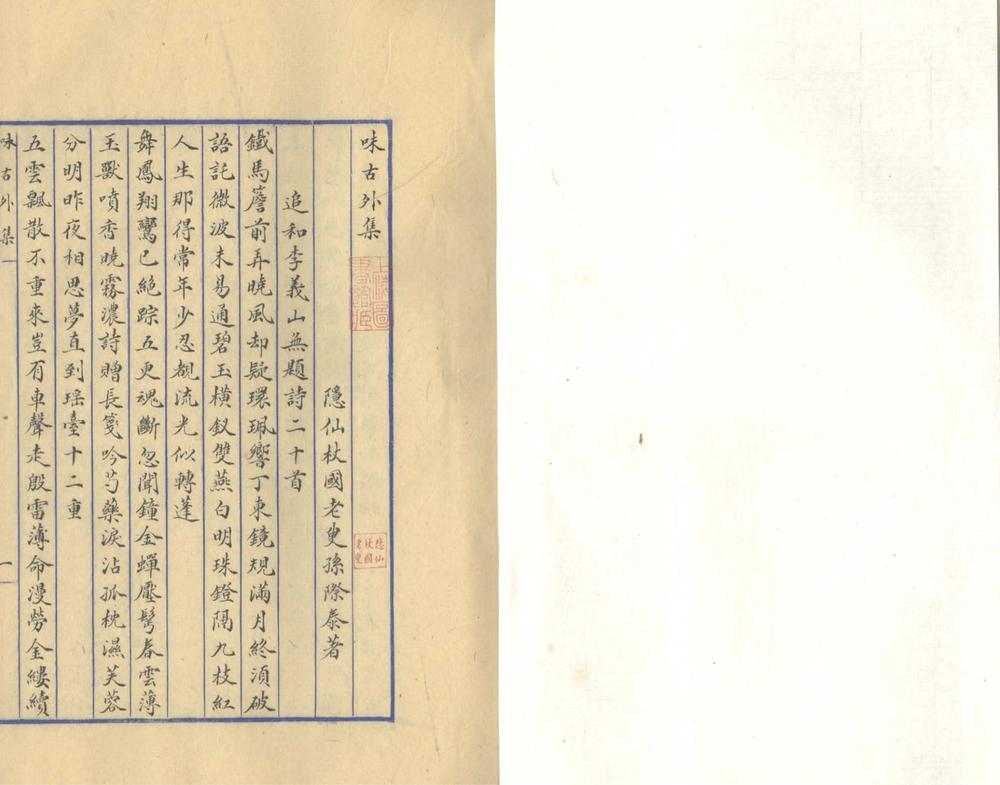 味古外集
隱仙杖國老叟孫際泰著
追和李義山無題詩二十首
鐵馬簷前弄曉風却疑環珮響丁東鏡規滿月終須破
語託微波未易通碧玉橫釵雙燕白明珠鐙隔九枝紅
人生那得常年少忍覩流光似轉蓬
舞鳳翔鸞已絕踪五更魂斷忽聞鐘金蟬壓髩春雲薄
玉獸噴香曉霧濃詩贈長箋吟芍藥淚沾孤枕濕芙蓉
分明昨夜相思夢直到瑶臺十二重
五雲飄散不重來豈有車聲走殷雷薄命漫勞金縷續
味古外集一
一
上海圖書館藏
隱仙杖國老叟